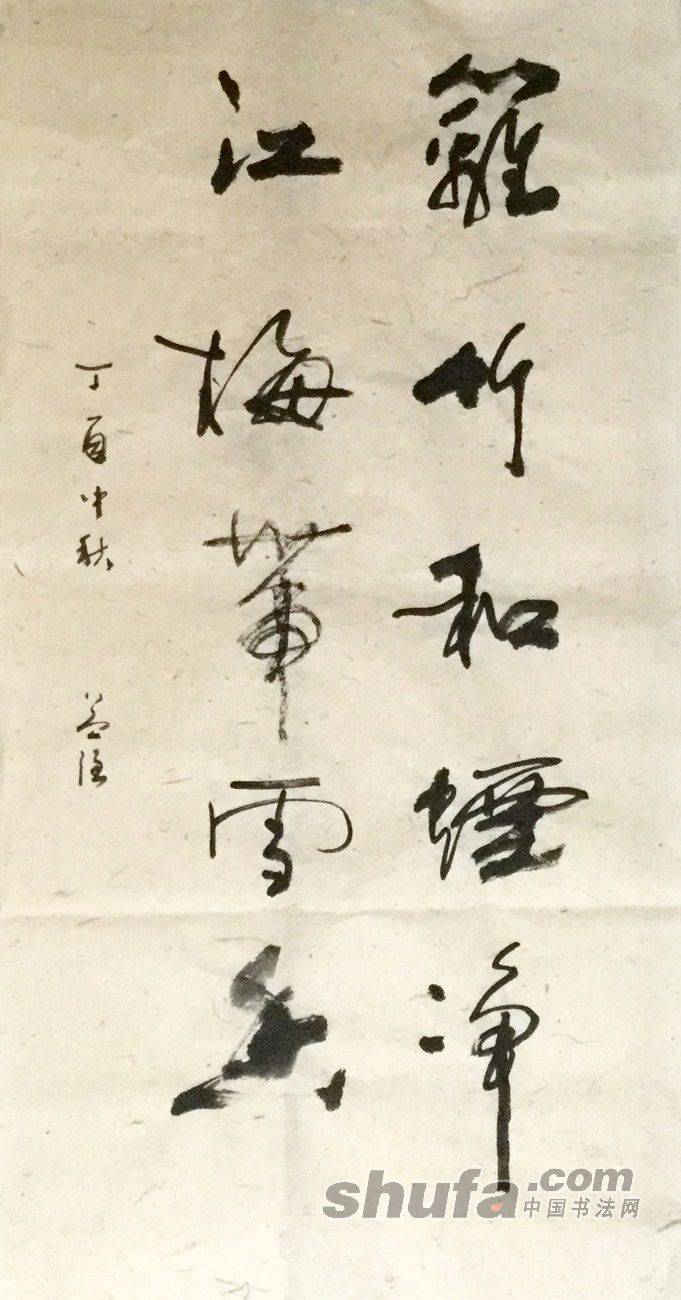 籬竹和煙淨
江梅帶雪香
丁酉中秋
shufa.com
中国书法网